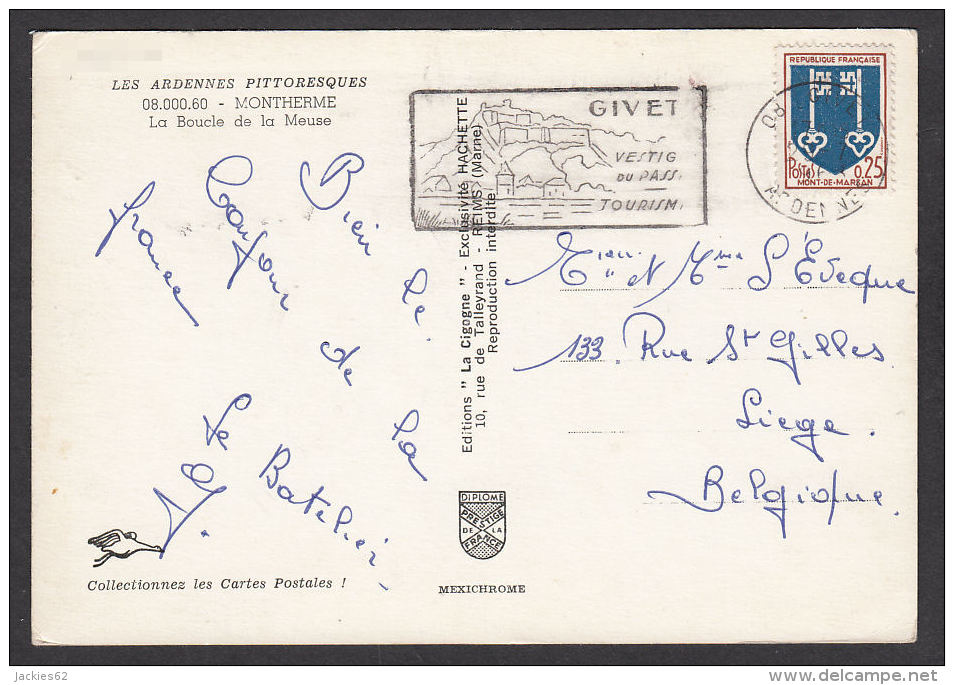 LES ARDENNES PITTORESQUES
08.000.60 - MONTHERME
La Boucle de la Meuse
Bien le
bonjour de la
france
Le Batelier
GIVET
VESTIG
DU PASS.
TOURISM.
REPUBLIQUE FRANÇAISE
POSTES 0,25
MONT-DE-MARSAN
08
ARDENNES
Editions " La Cigogne " - Exclusivité HACHETTE
10, rue de Talleyrand - REIMS (Marne)
Reproduction interdite
et Mme L'Évêque
133. Rue St Gilles
Liege.
Belgique.
DIPLOME
PRESTIGE
DE LA
FRANCE
MEXICHROME
Collectionnez les Cartes Postales !
jackies62
delcampe.net